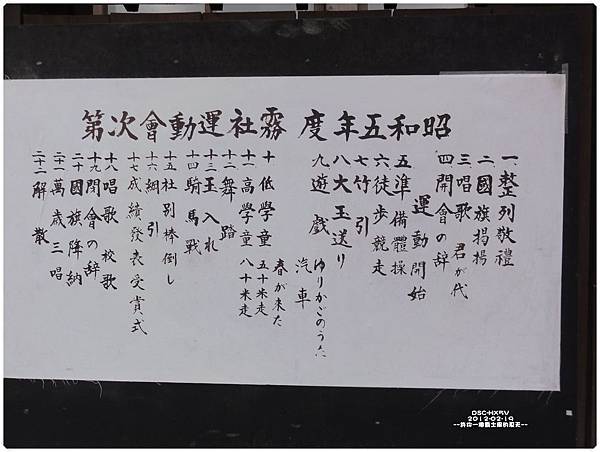 昭和五年度 霧社運動會次第
一 整列敬禮
二 國旗揭揚
三 唱歌 君が代
四 開會の辞
運動開始
五 準備體操
六 徒歩競走
七 竹引
八 大玉送り
九 遊戲 ゆりかごのうた
汽車
春が来た
十 低學童 五十米走
十一 高學童 八十米走
十二 舞踏
十三 玉入れ
十四 騎馬戰
十五 社別棒倒し
十六 綱引
十七 成績發表受賞式
十八 唱歌 校歌
十九 閉會の辞
二十 國旗降納
二十一 萬歲三唱
二十二 解散
DSC-HX5V
2012-02-19